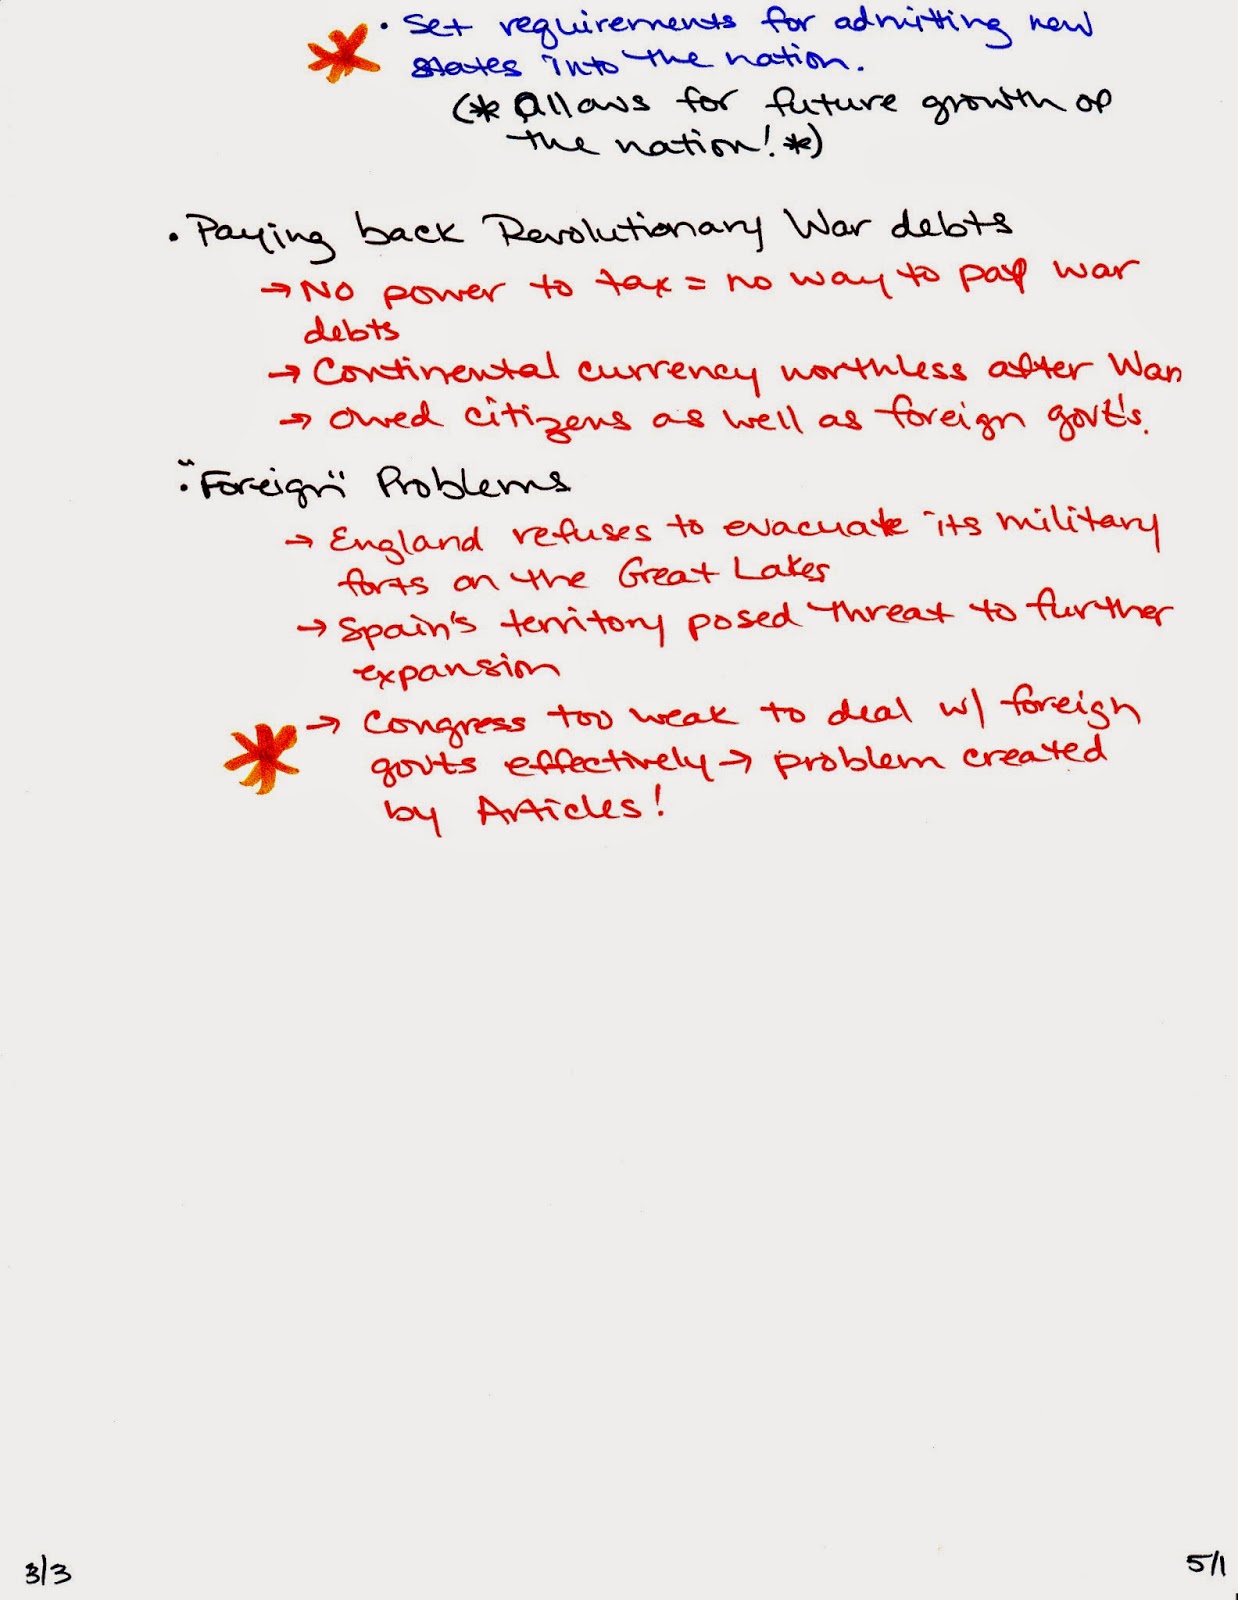 • Set requirements for admitting new
states into the nation.
(* Allows for future growth of
the nation! *)
• Paying back Revolutionary War debts
→ No power to tax = no way to pay war
debts
→ Continental currency worthless after War
→ Owed citizens as well as foreign govt's.
• "Foreign" Problems
→ England refuses to evacuate its military
forts on the Great Lakes
→ Spain's territory posed threat to further
expansion
→ Congress too weak to deal w/ foreign
govts effectively → problem created
by Articles!
3/3
5/1